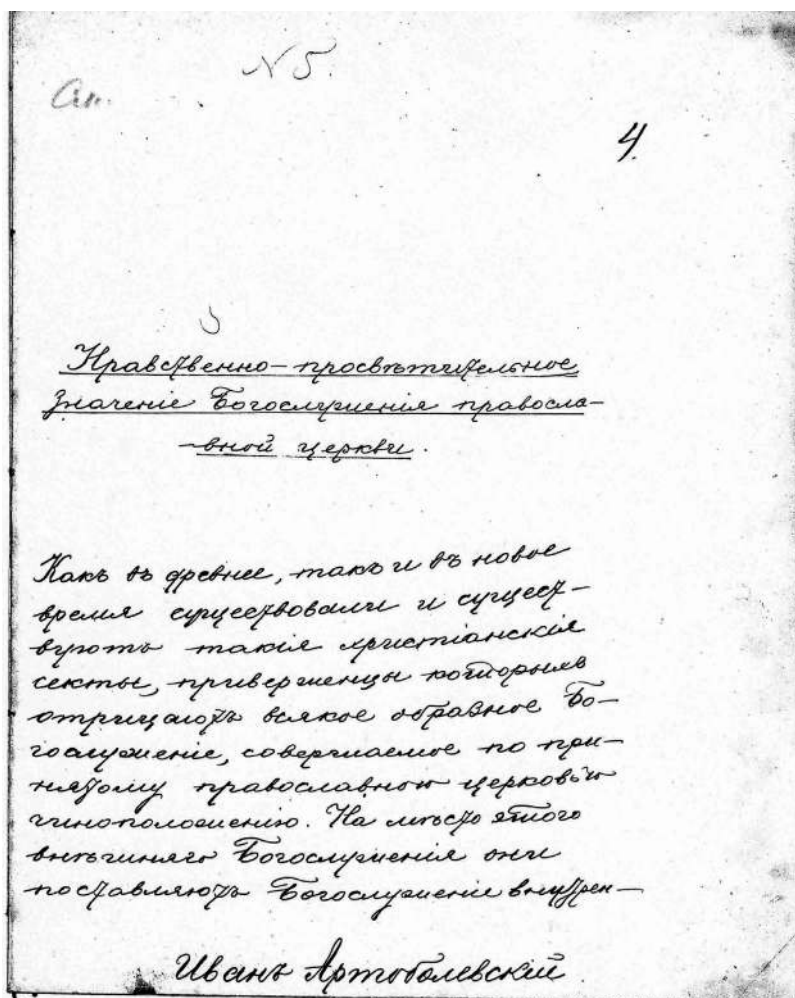 N 5.
4.
Нравственно-просвѣтительное
значеніе Богослуженія правосла-
-вной церкви.
Какъ въ древнее, такъ и въ новое
время существовали и сущест-
вуютъ такія христіанскія
секты, приверженцы которыхъ
отрицаютъ всякое образное Бо-
гослуженіе, совершаемое по при-
нятому православною церковью
чиноположенію. На мѣсто этого
внѣшняго Богослуженія они
поставляютъ Богослуженіе внутрен-
Иванъ Артоболевскій.